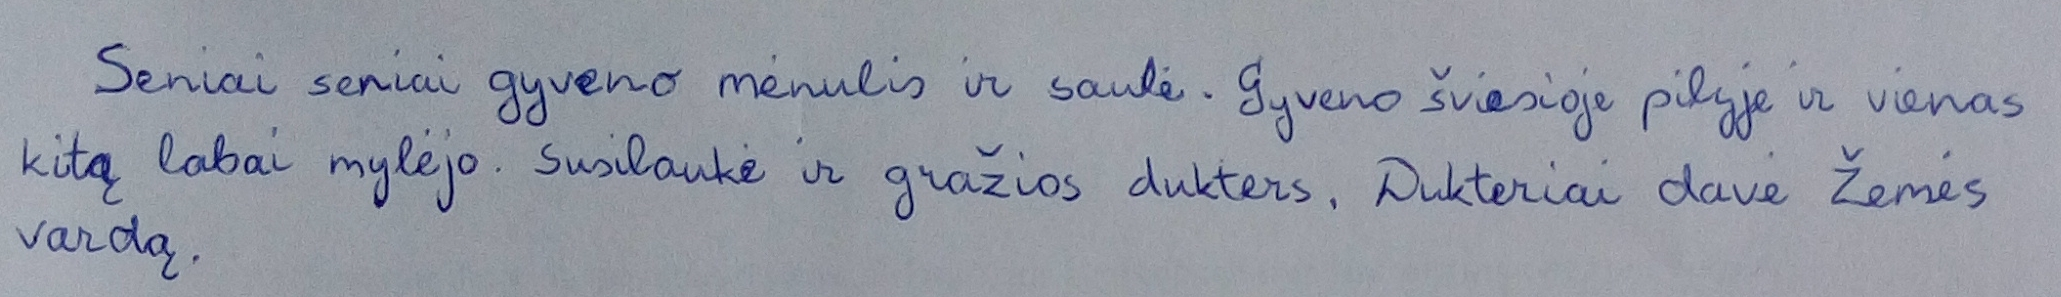 Seniai seniai gyveno mėnulis ir saulė. Gyveno šviesioje pilyje ir vienas
kitą labai mylėjo. Susilaukė ir gražios dukters. Dukteriai davė Žemės
vardą.